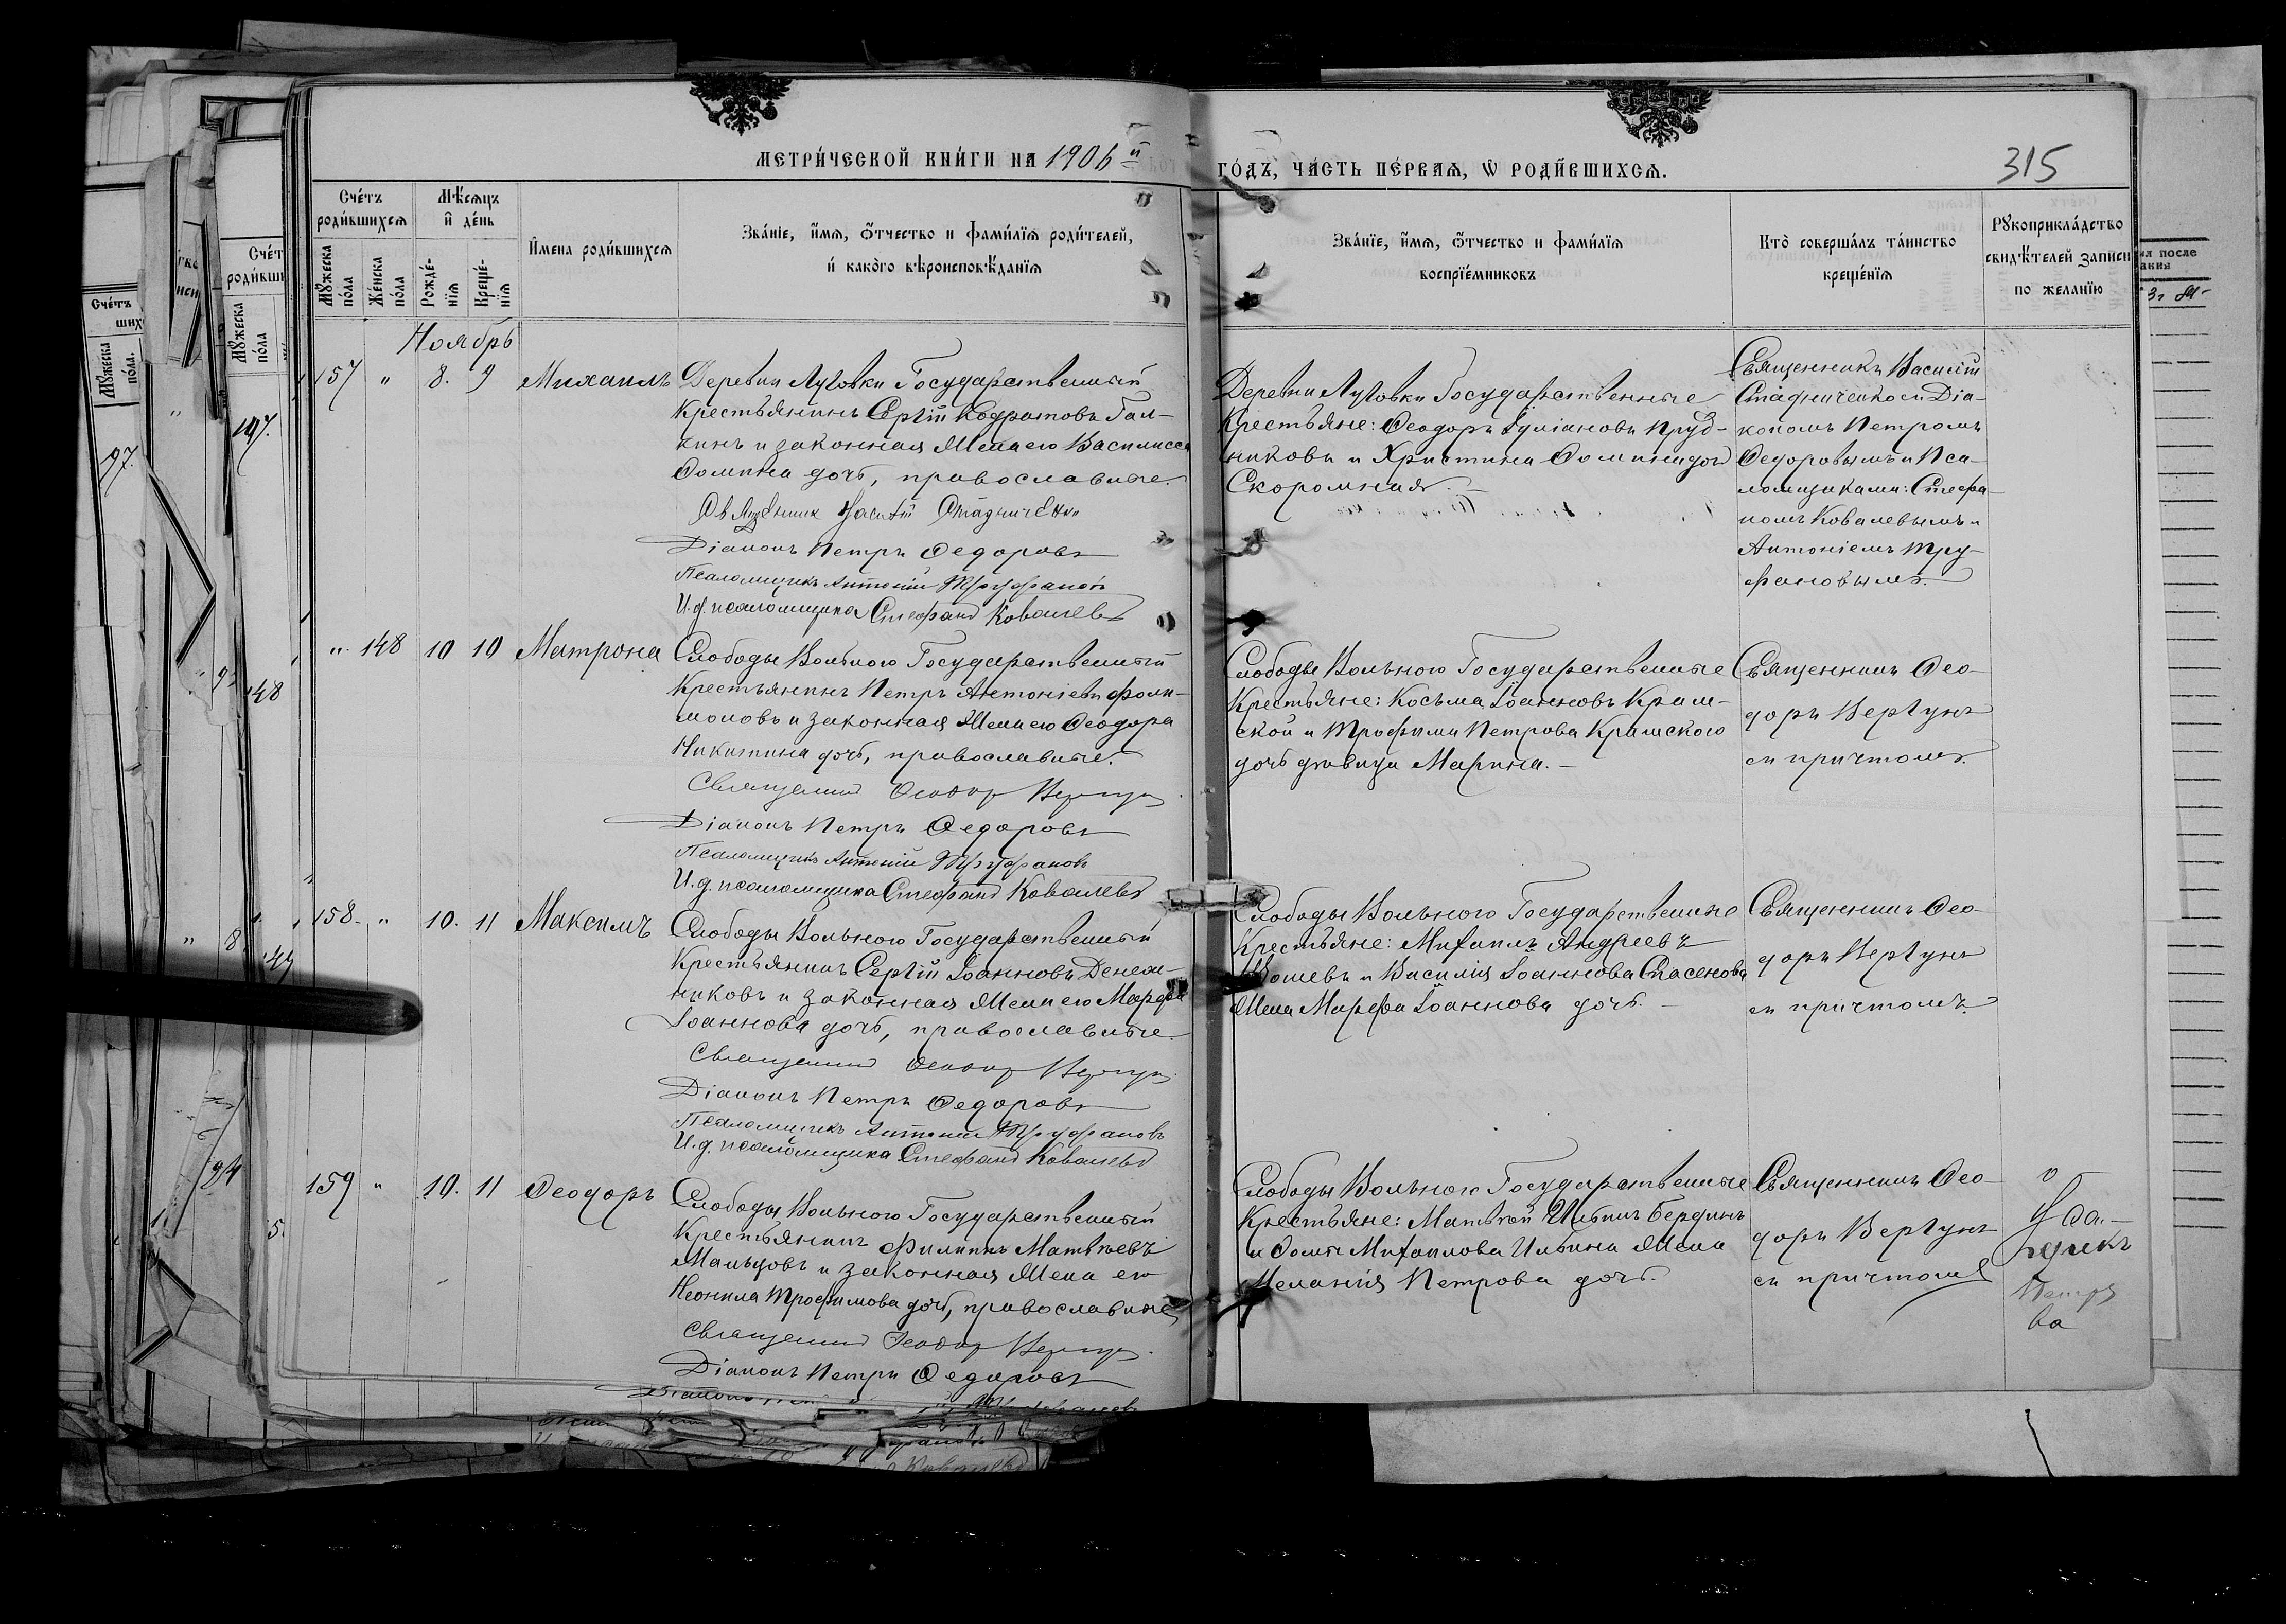 МЕТРИ́ЧЕСКОЙ КНИ́ГИ НА 1906 й
ГО́ДЪ, ЧА́СТЬ ПЕ́РВАѦ, Ѡ РОДИ́ВШИХСѦ.
315
Сче́тъ роди́вшихсѧ
Мѣ́сѧцъ и҆ де́нь
И҆мена роди́вшихсѧ
Зва́нїе, и҆́мѧ, ѻ҆́тчество и фами́лїѧ роди́телей,
и҆ како́гѡ вѣроисповѣ́данїѧ
Зва́нїе, и҆́мѧ, ѻ҆́тчество и фами́лїѧ
воспрїе́мниковъ
Кто̀ соверша́лъ та́инство
креще́нїѧ
Рꙋкоприкла́дство
свидѣ́телей записи
по жела́нїю
Мꙋ́жеска по́ла
Же́нска по́ла
Рожде́нїѧ
Креще́нїѧ
Ноябрь
157 " 8. 9 Михаилъ
Деревни Луговки Государственный
крестьянинъ Сергій Кодратовъ Гал-
кинъ и законная жена его Василисса
Ѳомина дочь, православные.
Священник Василій Стадниченко
Діаконъ Петръ Ѳедоровъ
Псаломщикъ Антоній Труфановъ
И.д. псаломщика Стефанъ Ковалевъ
Деревни Луговки Государственные
крестьяне: Ѳеодоръ Іуліановъ Пруд-
никовъ и Христина Ѳомина дочь
Скоромная.
Священникъ Василій
Стадниченко съ Діа-
кономъ Петромъ
Ѳедоровымъ и Пса-
ломщиками: Стефа-
номъ Ковалевымъ и
Антоніемъ Тру-
фановымъ.
" 148 10 10 Матрона
Слободы Вольного Государственный
крестьянинъ Петръ Антоніевъ Фили-
моновъ и законная жена его Ѳеодора
Никитина дочь, православные.
Священникъ Ѳеодор Вергун
Діаконъ Петръ Ѳедоровъ
Псаломщикъ Антоній Труфановъ
И.д. псаломщика Стефанъ Ковалевъ
Слободы Вольного Государственные
крестьяне: Косьма Іоанновъ Крам-
ской и Трофима Петрова Крамского
дочь дѣвица Марина.
Священникъ Ѳео-
доръ Вергунъ
съ причтомъ.
158. " 10. 11 Максимъ
Слободы Вольного Государственный
крестьянинъ Сергій Іоанновъ Денеж-
никовъ и законная жена его Марфа
Іоаннова дочь, православные.
Священникъ Ѳеодор Вергун
Діаконъ Петръ Ѳедоровъ
Псаломщикъ Антоній Труфановъ
И.д. псаломщика Стефанъ Ковалевъ
Слободы Вольного Государственные
крестьяне: Михаилъ Андреевъ
и Василія Іоаннова
жена Марфа Іоаннова дочь.
Священникъ Ѳео-
доръ Вергунъ
съ причтомъ.
159 " 10. 11 Ѳеодоръ
Слободы Вольного Государственный
крестьянинъ Филиппъ Матвѣевъ
Мальцовъ и законная жена его
Неонила Трофимова дочь, православные
Священникъ Ѳеодор Вергун
Діаконъ Петръ Ѳедоровъ
Слободы Вольного Государственные
крестьяне: Матвѣй Ильинъ Бердинъ
и Ѳомы Михаилова Ильина жена
Меланія Петрова дочь.
Священникъ Ѳео-
доръ Вергунъ
съ причтомъ